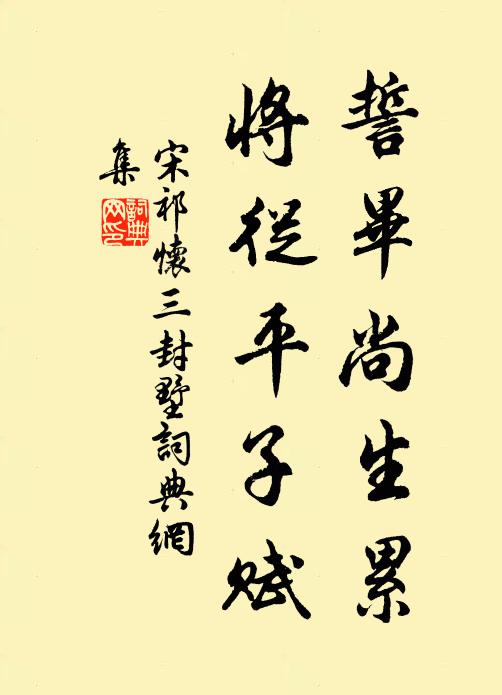 誓畢尚生累
將從平子賦
宋祁懷三封墅詞典網
集
詞典
网印